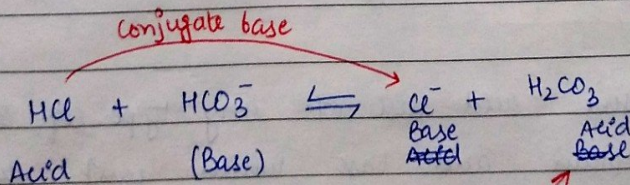 conjugate base
HCl + HCO₃⁻ ⇌ Cl⁻ + H₂CO₃
Acid (Base) Base Acid
Acid Base